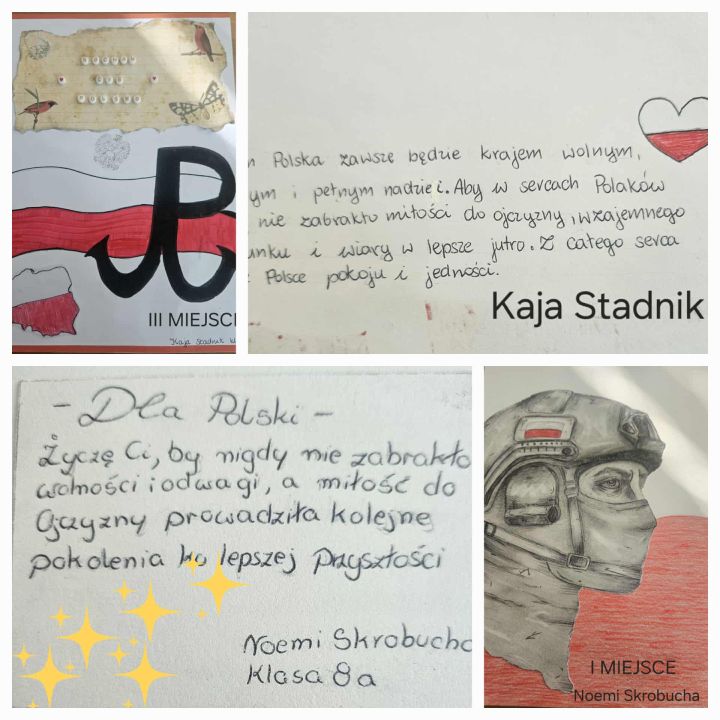 KOCHAM
CIĘ
POLSKO
III MIEJSCE
Kaja Stadnik kl
Polska zawsze będzie krajem wolnym,
ym i pełnym nadziei. Aby w sercach Polaków
nie zabrakło miłości do ojczyzny, wzajemnego
unku i wiary w lepsze jutro. Z całego serca
Polsce pokoju i jedności.
Kaja Stadnik
- Dla Polski -
Życzę Ci, by nigdy nie zabrakło
wolności i odwagi, a miłość do
Ojczyzny prowadziła kolejne
pokolenia ku lepszej przyszłości
Noemi Skrobucha
Klasa 8a
I MIEJSCE
Noemi Skrobucha